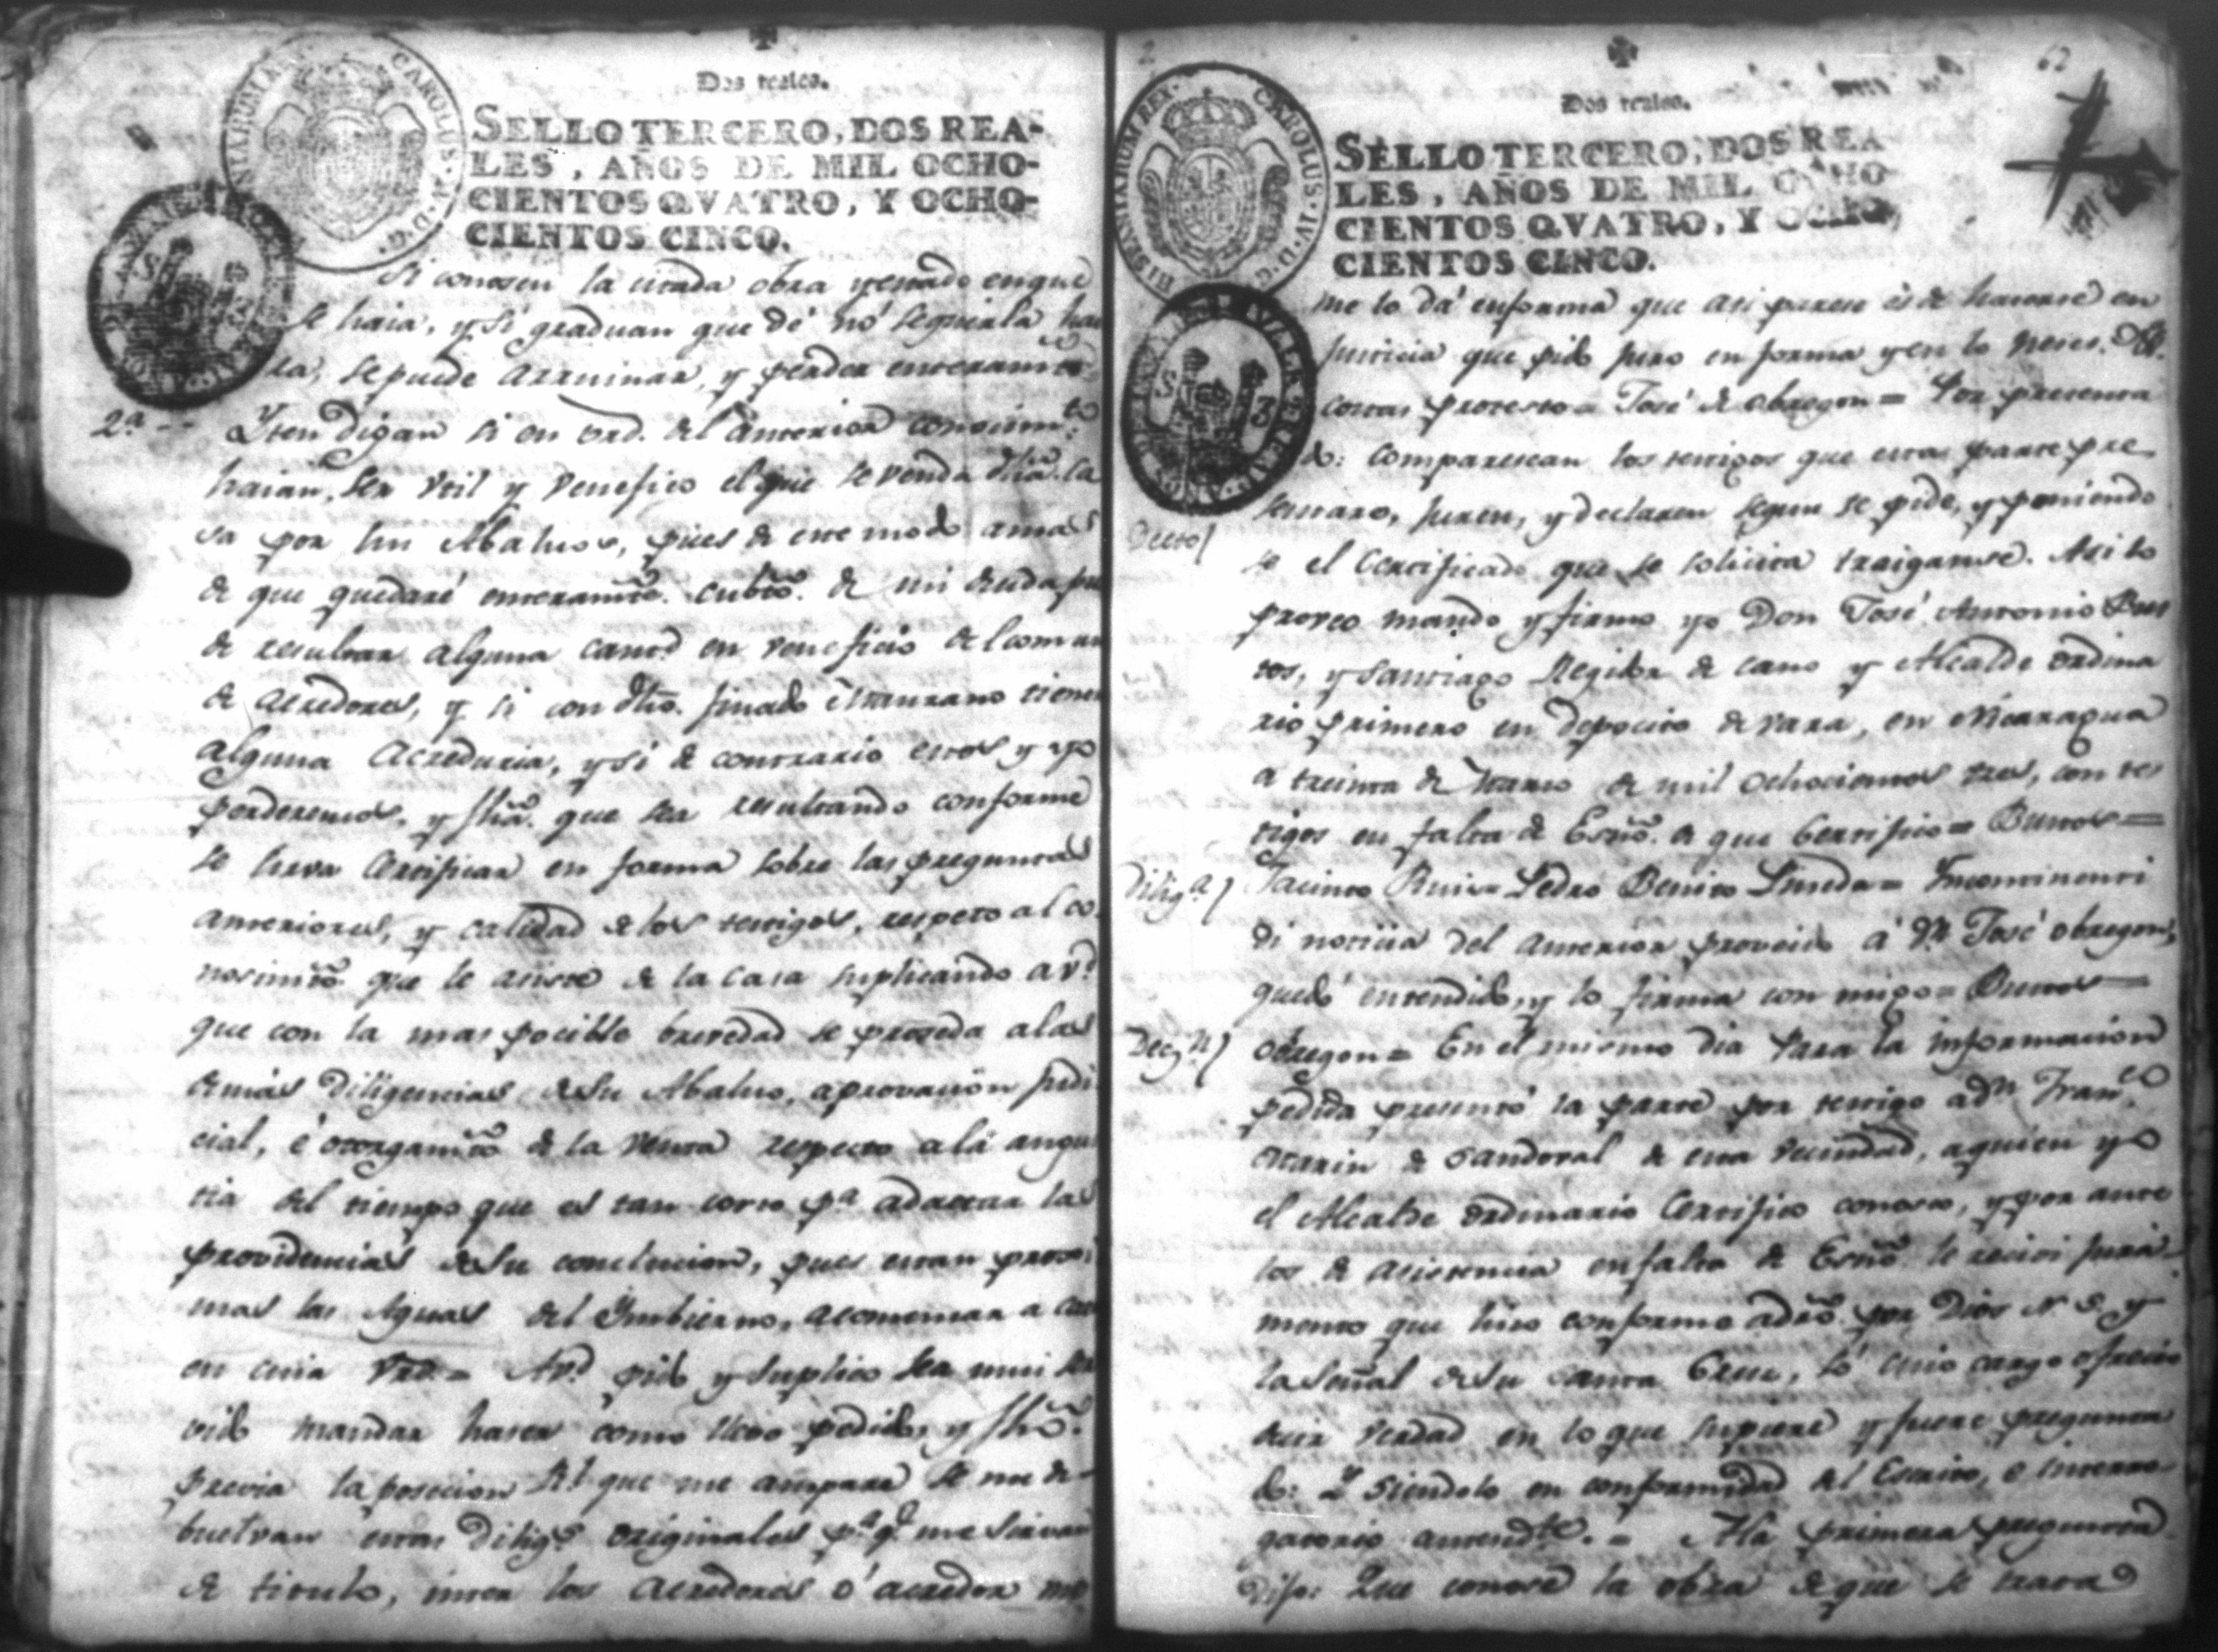 Dos reales.
SELLO TERCERO, DOS REA-
LES, AÑOS DE MIL OCHO-
CIENTOS QVATRO, Y OCHO-
CIENTOS CINCO.
CAROLUS IV D G HISPANIARUM REX
Si conosen la citada obra y estado en que
se haia, y si graduan que de nó seguirla has
ta, se puede arruinar, y perder enteramte
2.ª -- Yten digan si en vrd. del anterior conosimto.
haian, ser vtil y venefico el que se venda dha. ca
sa por su Abaluo, pues de este modo amas
de que quedaré enteramte. cubto. de mi deuda pue
de resultar alguna cantd. en veneficio del comun
de acredores, y si con dho. finado tienen
alguna Acreduria, y si de contrario estos y yo
perderemos, y fha. que sea resultando conforme
se sirva Certificar en forma sobre las preguntas
anteriores, y calidad de los testigos, respeto al co
nosimto. que le asiste de la casa suplicando a vd.
que con la mas pocible brevedad se proseda a las
demas Diligencias de su Abaluo, aprovacion judi
cial, é otorgamto. de la venta respecto a la angus
tia del tiempo que es tan corto pa. adactar las
providencias de su conclucion, pues estan procsi
mas las Aguas del Ymbierno, acomensar a caer
en cuia Vrd.= A vd. pido y suplico sea mui ser
vido mandar haser como llevo pedido, y fho.
previa la posecion Rl. que me ampare se me de
buelvan estas Diligs. originales pa. qe. me sirvan
de titulo, inter los acredores ó acredor no
2
62
Dos reales.
SELLO TERCERO, DOS REA
LES, AÑOS DE MIL OCHO
CIENTOS QVATRO, Y OCHO
CIENTOS CINCO.
CAROLUS IV D G HISPANIARUM REX
me lo dá en forma que asi parese es de haserse en
Justicia que pido juro en forma y en lo neces. A.
costas protesto= José de obregon= Por presenta
do: comparescan los testigos que esta parte pre
sentaro, juren, y declaren segun se pide, y poniendo
Decto/
se el Certificado que se solicita traiganse. Asi lo
proveo mando y firmo yo Don José Antonio Bus
tos, y Santiago Regidor de cano y Alcalde ordina
rio primero en depocito de vara, en Nicaragua
a treinta de Marso de mil ochocientos tres, con tes
tigos en falta de Esno. de que Certifico= Bustos=
Diliga/ Jacinto Ruis= Pedro Benito Pineda= Yncontinenti
di noticia del anterior proveido á Dn. José obregon,
quedó entendido, y lo firma con migo= Bustos=
Decn/ obregon= En el mismo dia Para la informacion
pedida presentó la parte por testigo a dn. Franco.
Marin de Sandoval de esta vecindad, aquien yo
el Alcalde ordinario Certifico conosco, y por ante
los de acistencia en falta de Esno. le recivi jura
mento que hiso conforme a dro. por Dios N. S. y
la Señal de su Santa Cruz, só cuio cargo ofrecio
desir verdad en lo que supiere y fuere pregunta
do: Y siendolo en conformidad del Escrito, é interro
gatorio antecedte.= A la primera pregunta
Dijo: Que conose la obra de que se trata